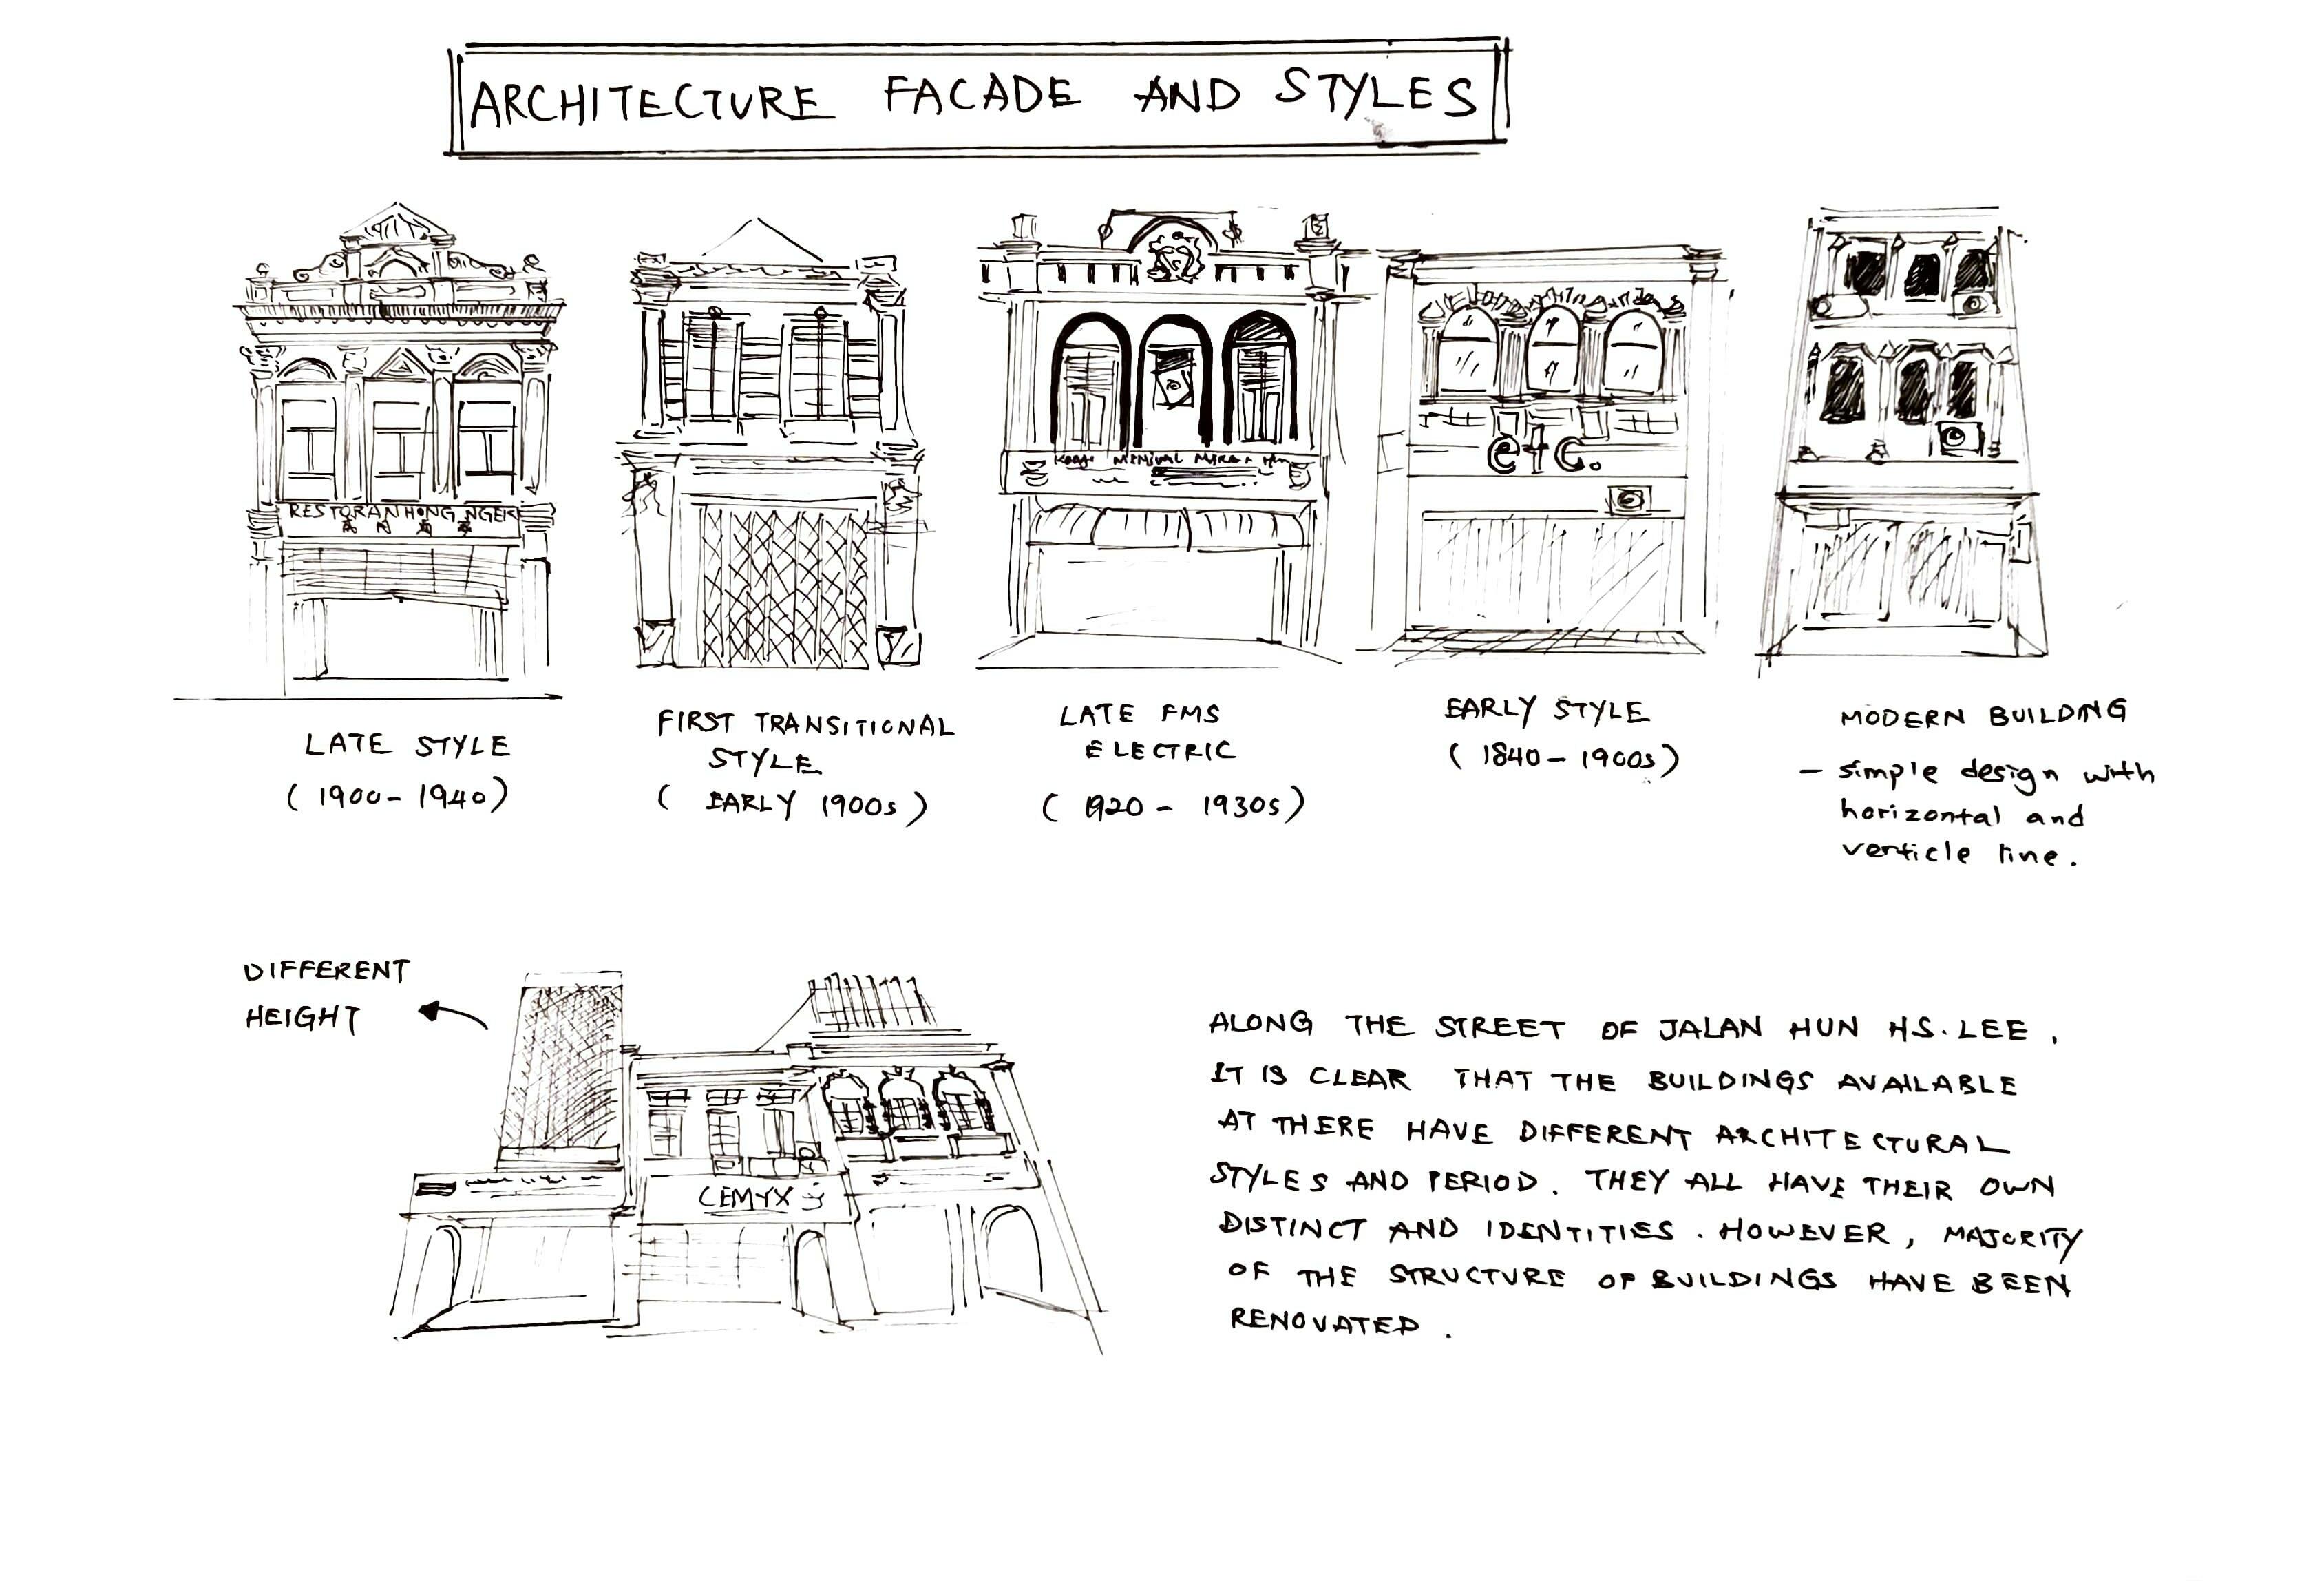 ARCHITECTURE FACADE AND STYLES
RESTORAN HONG NGEK
etc.
LATE STYLE
(1900-1940)
FIRST TRANSITIONAL
STYLE
(EARLY 1900s)
LATE FMS
ELECTRIC
(1920 - 1930s)
EARLY STYLE
(1840-1900s)
MODERN BUILDING
- simple design with
horizontal and
verticle line.
DIFFERENT
HEIGHT
CEMYX
ALONG THE STREET OF JALAN HUN HS. LEE,
IT IS CLEAR THAT THE BUILDINGS AVAILABLE
AT THERE HAVE DIFFERENT ARCHITECTURAL
STYLES AND PERIOD. THEY ALL HAVE THEIR OWN
DISTINCT AND IDENTITIES. HOWEVER, MAJORITY
OF THE STRUCTURE OF BUILDINGS HAVE BEEN
RENOVATED.